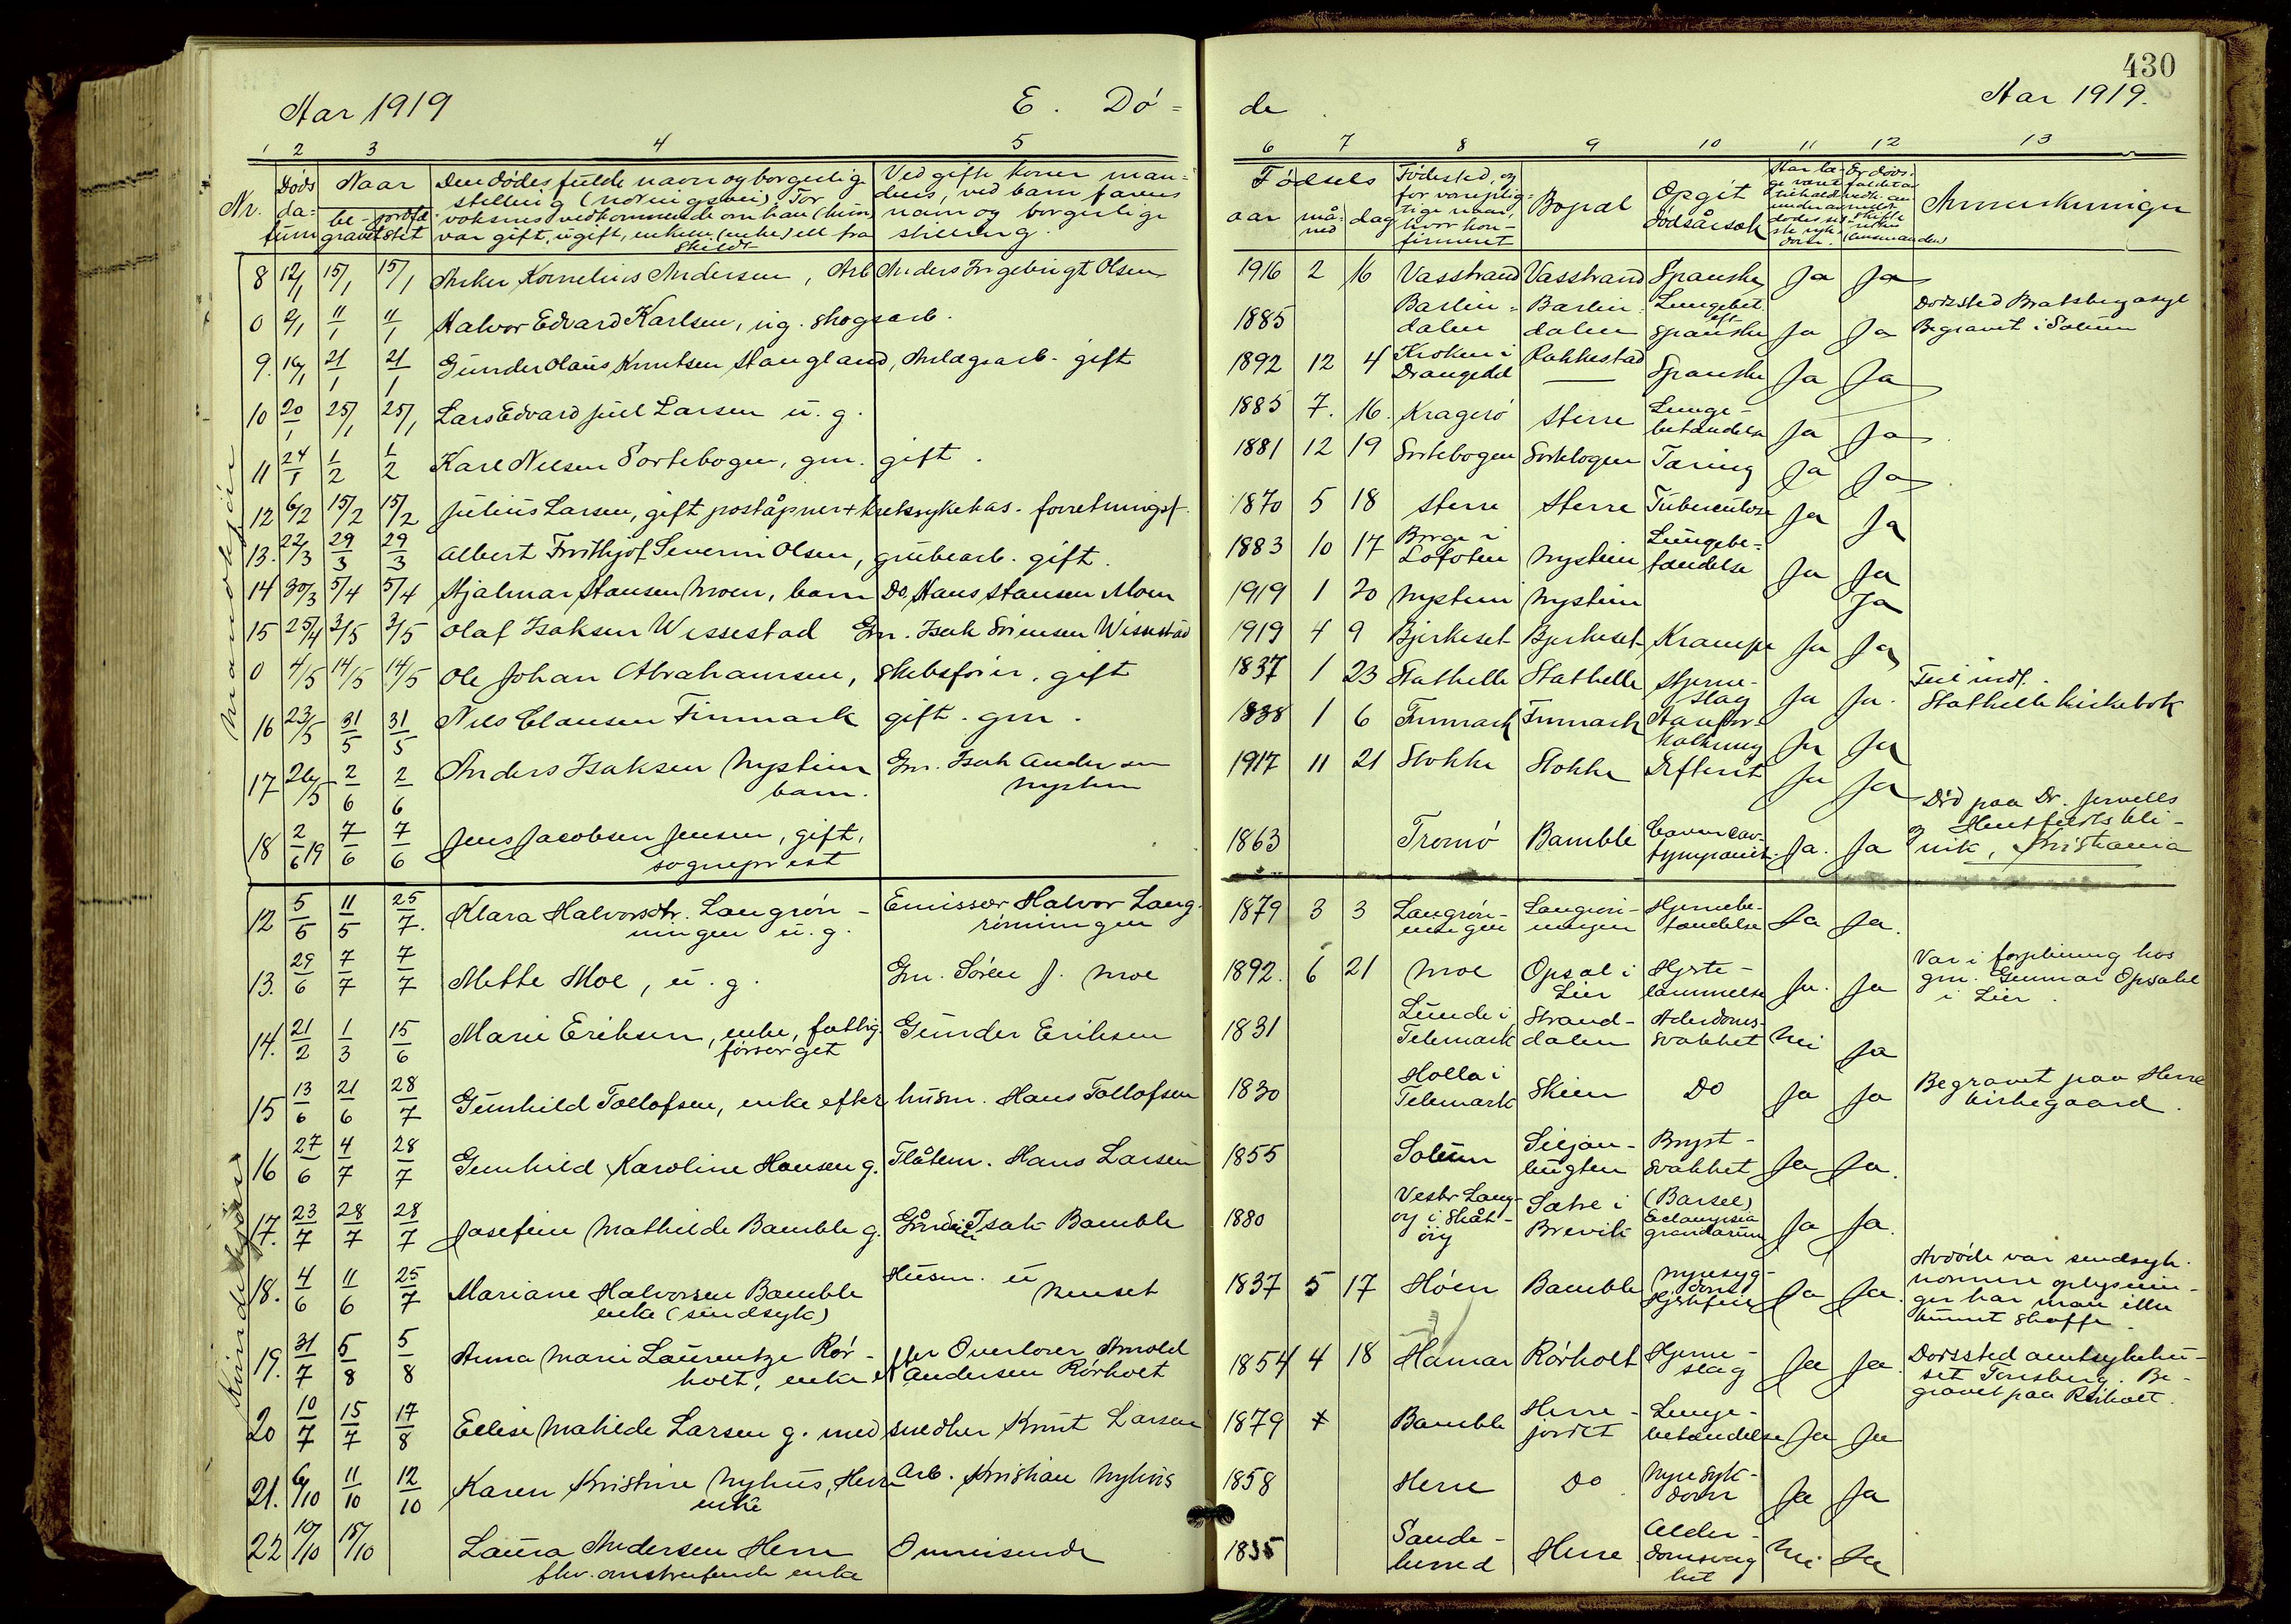 430
Aar 1919
E. Dö=
de
Aar 1919.
1 2 3 4 5
6 7 8 9 10 11 12 13
Nr.
Döds da: tum
Naar
be- gravet
jordfæ stet
Den dödes fulde navn og borgerlig
stilling (næringsvei) For
voksnes vedkommende om han (hun)
var gift, ugift, enkem. (enke) ell. fra
skildt
Ved gifte koner man=
dens, ved barn farens
navn og borgerlige
stilling.
Födsels
aar må: ned dag
Födested, og
for vernplig=
tige navn,
hvor kon-
firmert
Bopæl
Opgit
dödsårsak
Anmerkninger
Mandkjön
8 12/1 15/1 15/1 Anker Kornelius Andersen, Arb. Anders Ingebrigt Olsen 1916 2 16 Vasstrand Vasstrand Spanske Ja Ja
0 2/1 11/1 11/1 Halvor Edvard Karlsen, ug. skogsarb. 1885 Barlin=dalen Barlin:dalen Lungebet. eft. spanske Ja Ja Dødssted Bratsberg asyl
Begravet i Solum
9. 16/1 21/1 21/1 Gunder Olaus Knutsen Haugland, Anlægsarb. gift 1892 12 4 Kroken i Drangedal Rakkestad Spanske Ja Ja
10 20/1 25/1 25/1 Lars Edvard Juel Larsen u. g. 1885 7. 16. Kragerö Herre Lunge-betændelse Ja Ja
11 24/1 1/2 1/2 Karl Nilsen Sortebogen, gm. gift. 1881 12 19 Sortebogen Sortebogen Tæring Ja Ja
12 6/2 15/2 15/2 Julius Larsen, gift poståpner + kretssykekas. forretningsf. 1870 5 18 Herre Herre Tuberculose Ja Ja
13. 22/3 29/3 29/3 Albert Frithjof Severin Olsen, grubearb. gift. 1883 10 17 Borge i Lofoten Nystein Lungebe=tændelse Ja Ja
14 30/3 5/4 5/4 Hjalmar Hansen Moen, barn Do. Hans Hansen Moen 1919 1 20 Nystein Nystein Ja
15 25/4 3/5 3/5 Olaf Isaksen Wissestad Gm. Isak Sörensen Wissestad 1919 4 9 Bjerkeset Bjerkeset Krampe Ja Ja
0 4/5 14/5 14/5 Ole Johan Abrahamsen, skibsförer, gift 1837 1 23 Stathelle Stathelle Hjerne-slag Ja Ja. Feil indf.
Stathelle kirkebok
16 23/5 31/5 31/5 Nils Clausen Finmark gift. gm. 1838 1 6 Finmark Finmark Ja Ja
17 26/5 2/6 2/6 Anders Isaksen Nystein barn. Gm. Isak Andersen Nystein 1917 11 21 Stokke Stokke Difterit Ja Ja
18 2/6 19 7/6 7/6 Jens Jacobsen Jensen, gift, sogneprest 1863 Tromö Bamble Ja. Ja Död paa Dr. Jervells
og Hentfeldts kli-
nik, Kristiania
Kvindekjön
12 5/5 11/5 25/7. Klara Halvorsdtr. Langrön-ningen u. g. Emissær Halvor Lang-rönningen 1879 3 3 Langrön-ningen Langrön-ningen Hjernebe-tændelse Ja Ja.
13. 29/6 7/7 7/7 Mette Moe, u. g. Gm. Sören J. Moe 1892. 6 21 Moe Opsal i Lier Hjerte-lammelse Ja. Ja Var i forpleining hos
gm. Gunnar Opsahl
i Lier.
14. 21/2 1/3 15/6 Marie Eriksen, enke, fattig forsørget Gunder Eriksen 1831 Lunde i Telemark Strand-dalen Alderdoms-svakhet Nei Ja
15 13/6 21/6 28/7 Gunhild Tollofsen, enke efter husm. Hans Tollofsen 1830 Holla i Telemark Skien Do Ja Ja Begravet paa Herre
kirkegaard.
16 27/6 4/7 28/7 Gunhild Karoline Hansen g. Flåtem. Hans Larsen 1855 Solum Siljan-bugten Bryst-svakhet Ja Ja.
17. 23/7 28/7 28/7 Josefine Mathilde Bamble g. Isak Bamble 1880 Vestr. Lang-öy i Skåt-öy Sætre i Brevik (Barsel) Eclampsia gravidarum Ja Ja.
18. 4/6 11/6 25/7 Mariane Halvorsen Bamble enke (sindsyk) Husm. u 1837 5 17 Höen Bamble Nyresyg-dom Hjertefeil Ja Ja. Avdöde var sindsyk.
nærmere oplysnin-
ger har man ikke
kunnet skaffe.
19. 31/7 5/8 5/8 Anna Marie Laurentze Rör-holt, enke efter Overlærer Arnold Andersen Rörholt 1854 4 18 Hamar Rörholt Hjerne-slag Ja Ja. Dødssted amtsykehu-
set Tönsberg. Be-
gravet paa Rörholt.
20 10/7 15/7 17/8 Ellise Mathilde Larsen g. med snedker Knut Larsen 1879 Bamble Herre-jordet Lunge-betændelse Ja Ja
21. 6/10 11/10 12/10 Karen Kristine Nyhus, Herre enke Arb. Kristian Nyhus 1858 Herre Do Nyresyk-dom Ja Ja
22 10/10 15/10 Laura Andersen Herre fhv. omstreifende enke Omreisende 1835 Sande-herred Herre Alder-domssvag-het Nei Ja